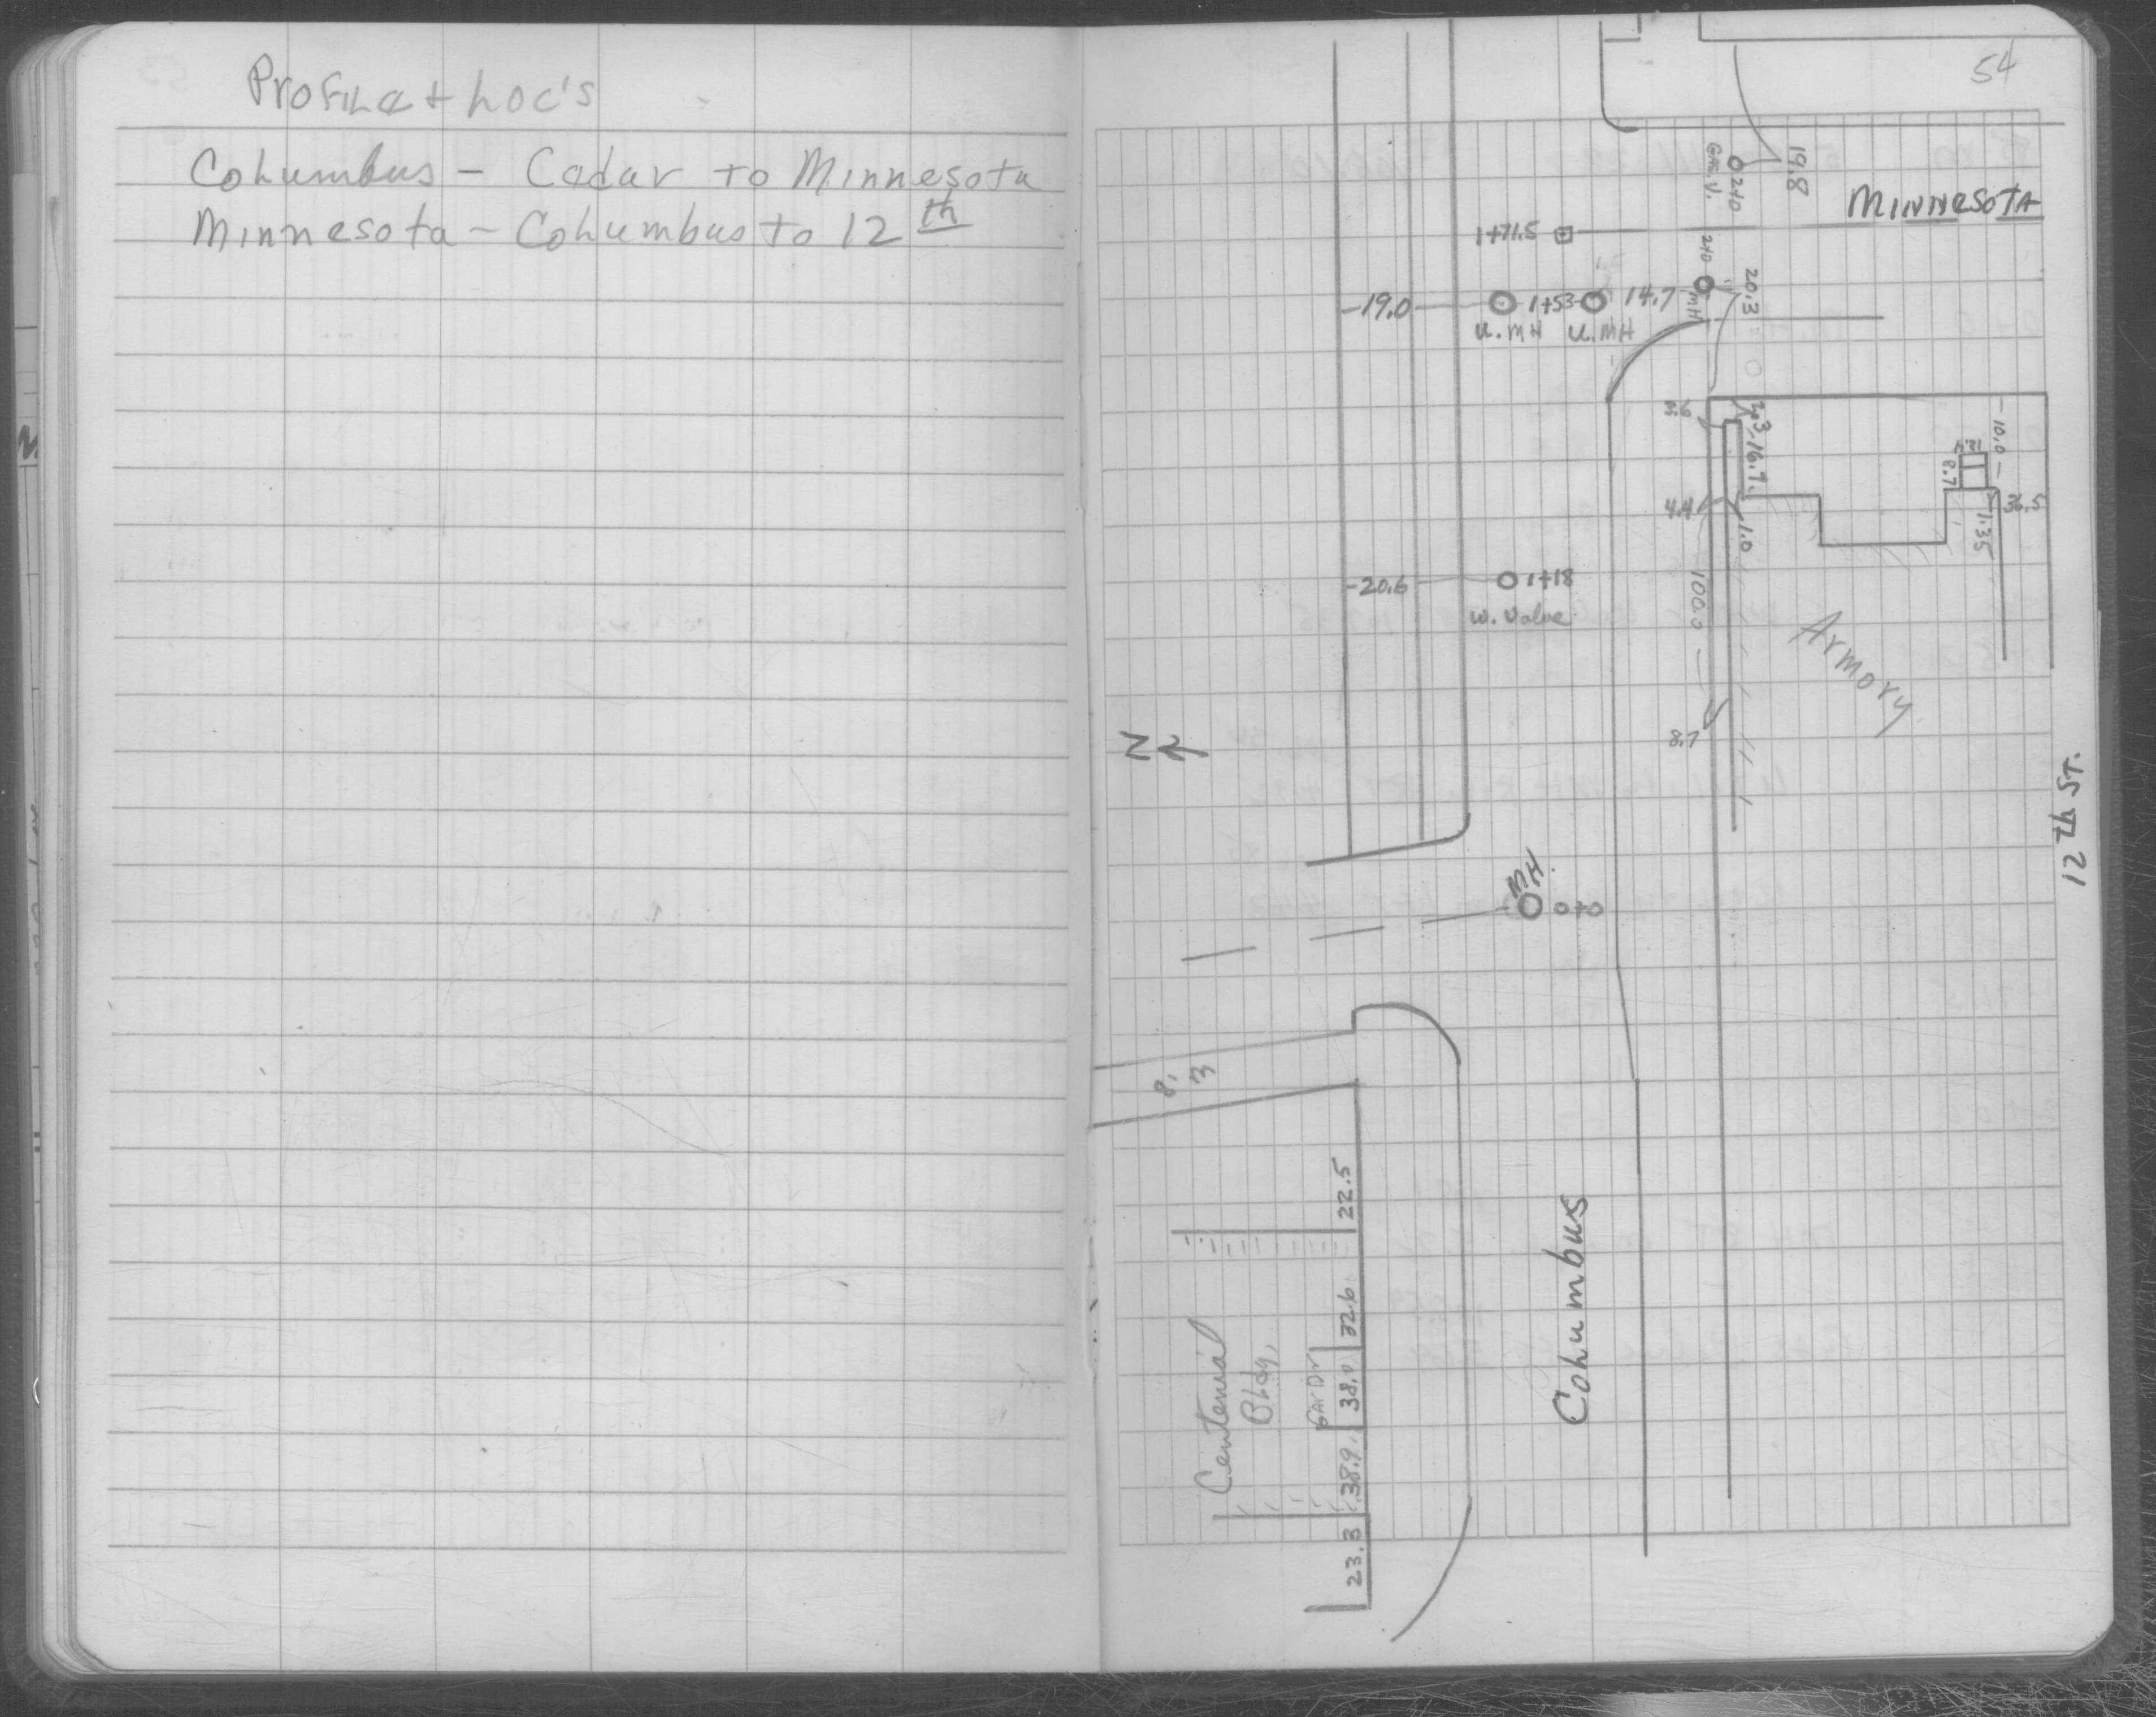 Profile & Loc's
Columbus - Cedar to Minnesota
Minnesota - Columbus to 12th
54
19.8
Gas V.
2+10
Minnesota
1+71.5
2+10
MH
20.3
-19.0
1+53
14.7
U.MH
U.MH
3.6
2.3
16.7
10.0
8.7
36.5
4.4
1.0
1.35
-20.6
1+18
W. Valve
100.0
Armory
8.7
N
12th St.
MH.
0+0
8.3
22.5
32.6
38.0
38.9
23.3
Centennial
Bldg.
Columbus